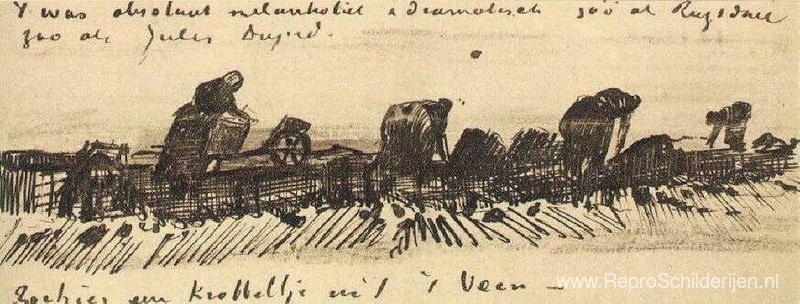 't was absoluut melankoliek & dramatisch zoo als Ruysdael
zoo als Jules Dupré.
Ziehier een Krabbeltje uit 't Veen —
www.ReproSchilderijen.nl